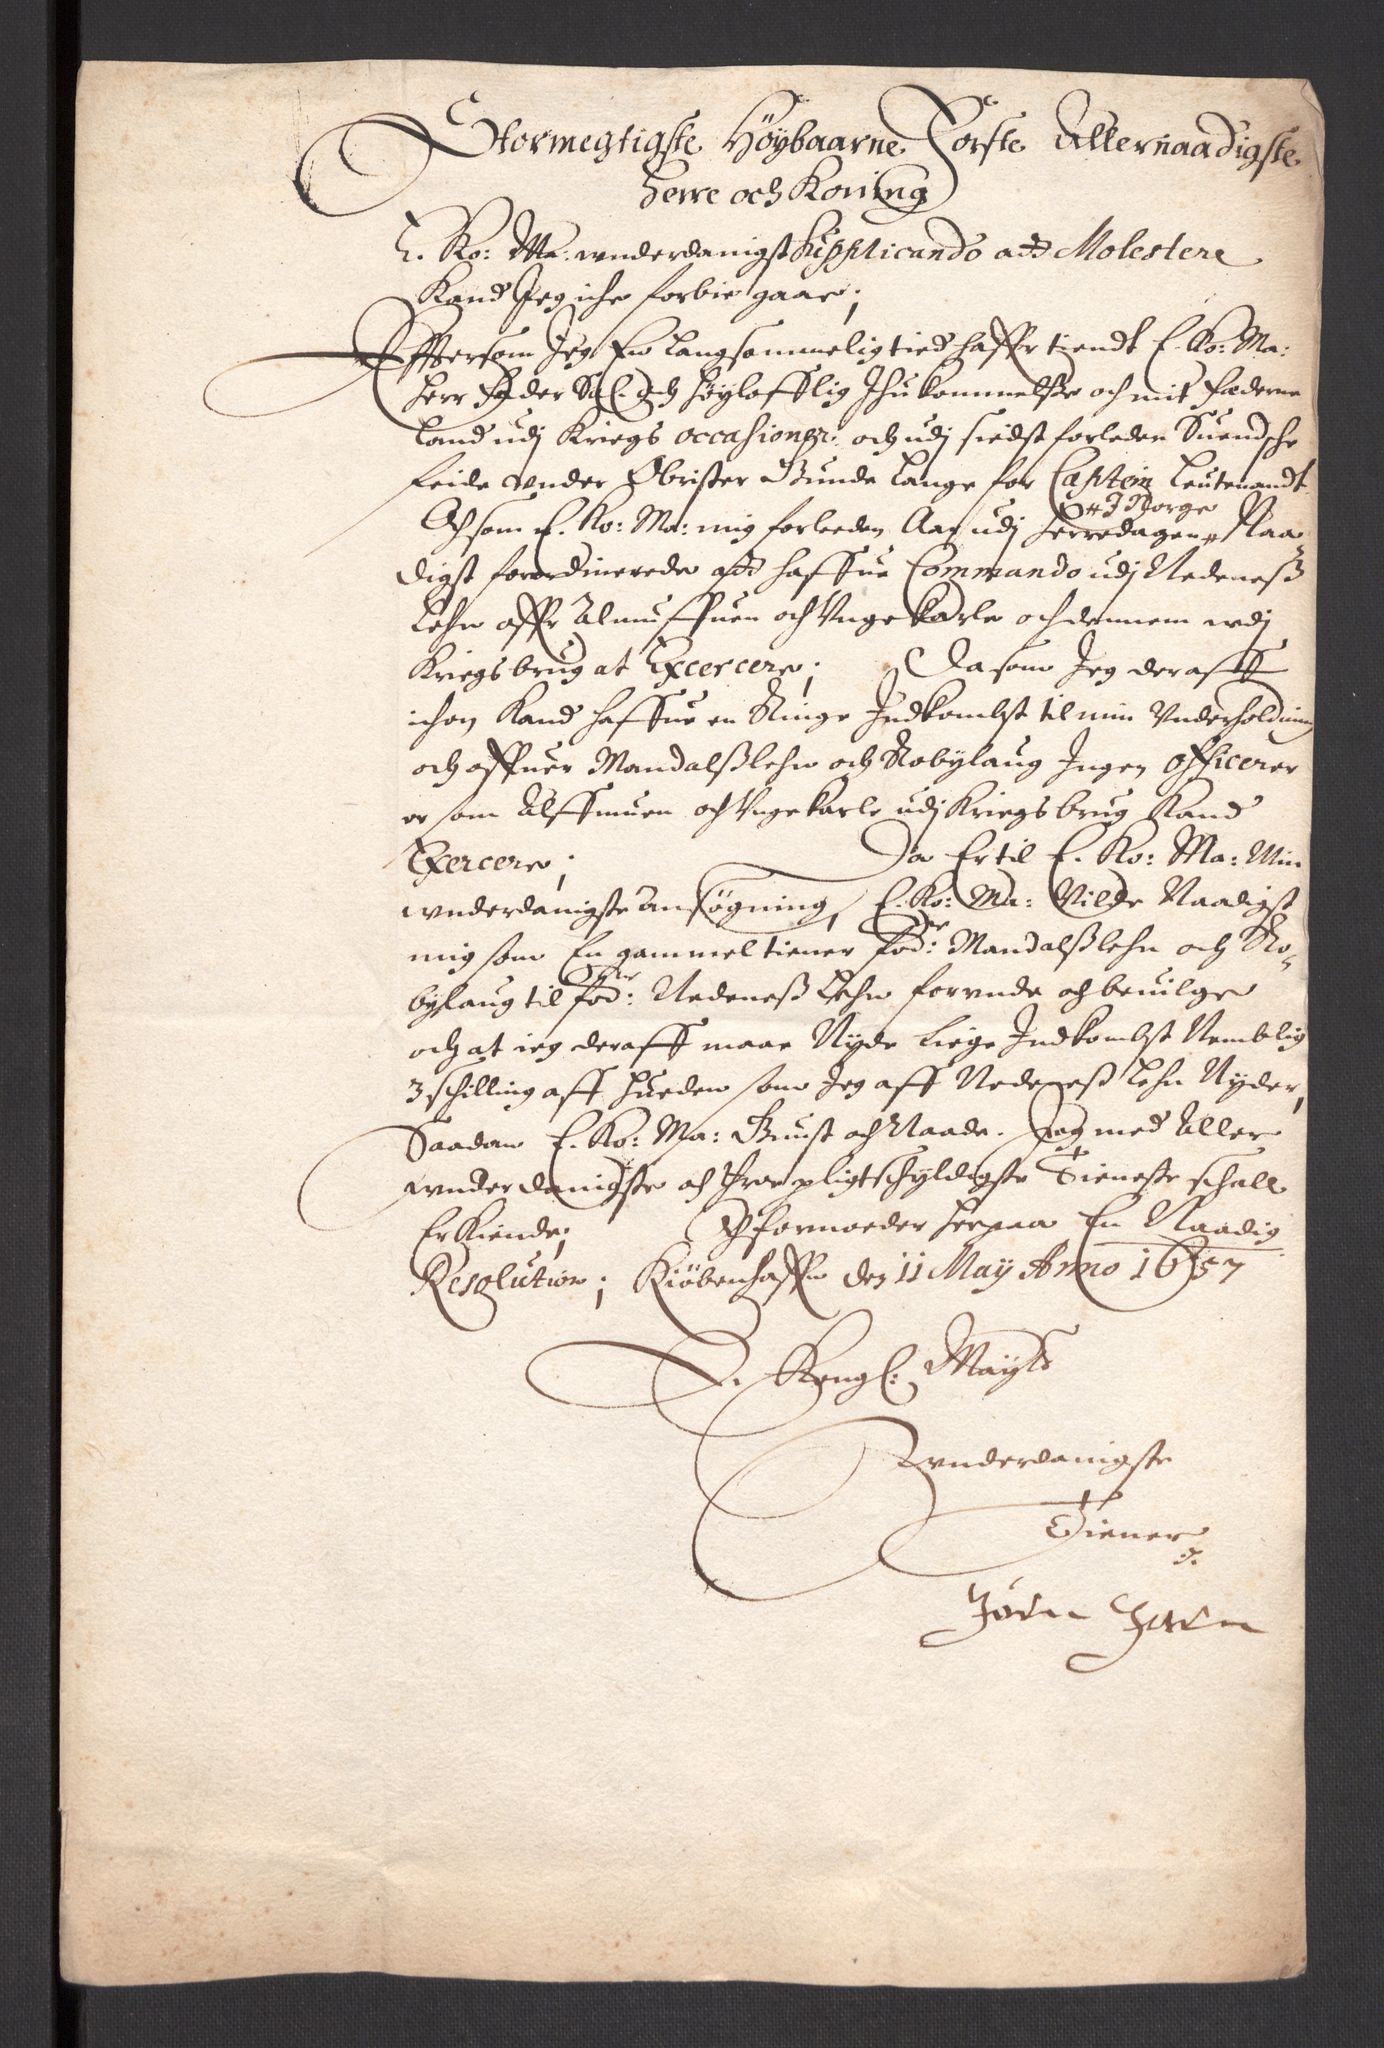 Stormegtigste Høybaarne Første Allernaadigste
Herre och Koning
E. Ko: Ma: wnderdanigst Supplicando att Molestere
Kand Jeg iche forbie gaae;
Effttersom Jeg En langsommelig tied haffr tiendt E. Ko: Ma:
Herr Fader Sal. och høyloffflig Ihukommelsse och mit fæderne
land udj Kriegs occasioner, och udj sidst forleden Suendsche
feide Vnder Obrister Gunde Lange for Captein Leutenandt
Och som E. Ko: Ma: mig forleeden Aar udj herredagen I Norge Naa
digst forordinerede att haffue Commando udj Nedeness
Lehn offr Almuffuen och Vnge karle och dennem udj
Kriegsbrug at Excercere; Da som Jeg deraff
ichon Kand haffue en Ringe Indkombst til min Vnderholdning
och offuer Mandalsslehn och Robylaug Ingen Officerer
er som Alffmuen och Vnge karle udj Kriegsbrug Kand
Exercere; Da Er til E. Ko: Ma: Min
wnderdanigste ansøgning, E. Ko: Ma: Vilde Naadigst
mig som En gammel tiener for: Mandalsslehn och Ro-
bylaug til for: Nedeness Lehn forvnde och beuilge
och at ieg deraff maae Nyde liige Indkombst Nemblig
3 schilling aff Hueden som Jeg aff Nedeness Lehn Nyder,
Saadan E. Ko: Ma: Gunst och Naade. Jeg med Aller
wnderdanigste och troe pligtschyldigste Tieneste schall
Erkiende; Er formoeder herpaa En Naadig
Resolution; Kiøbenhaffn den 11 Maÿ Anno 1657
E. Kongl: Maÿts
Wnderdanigste
Tiener
Jörn